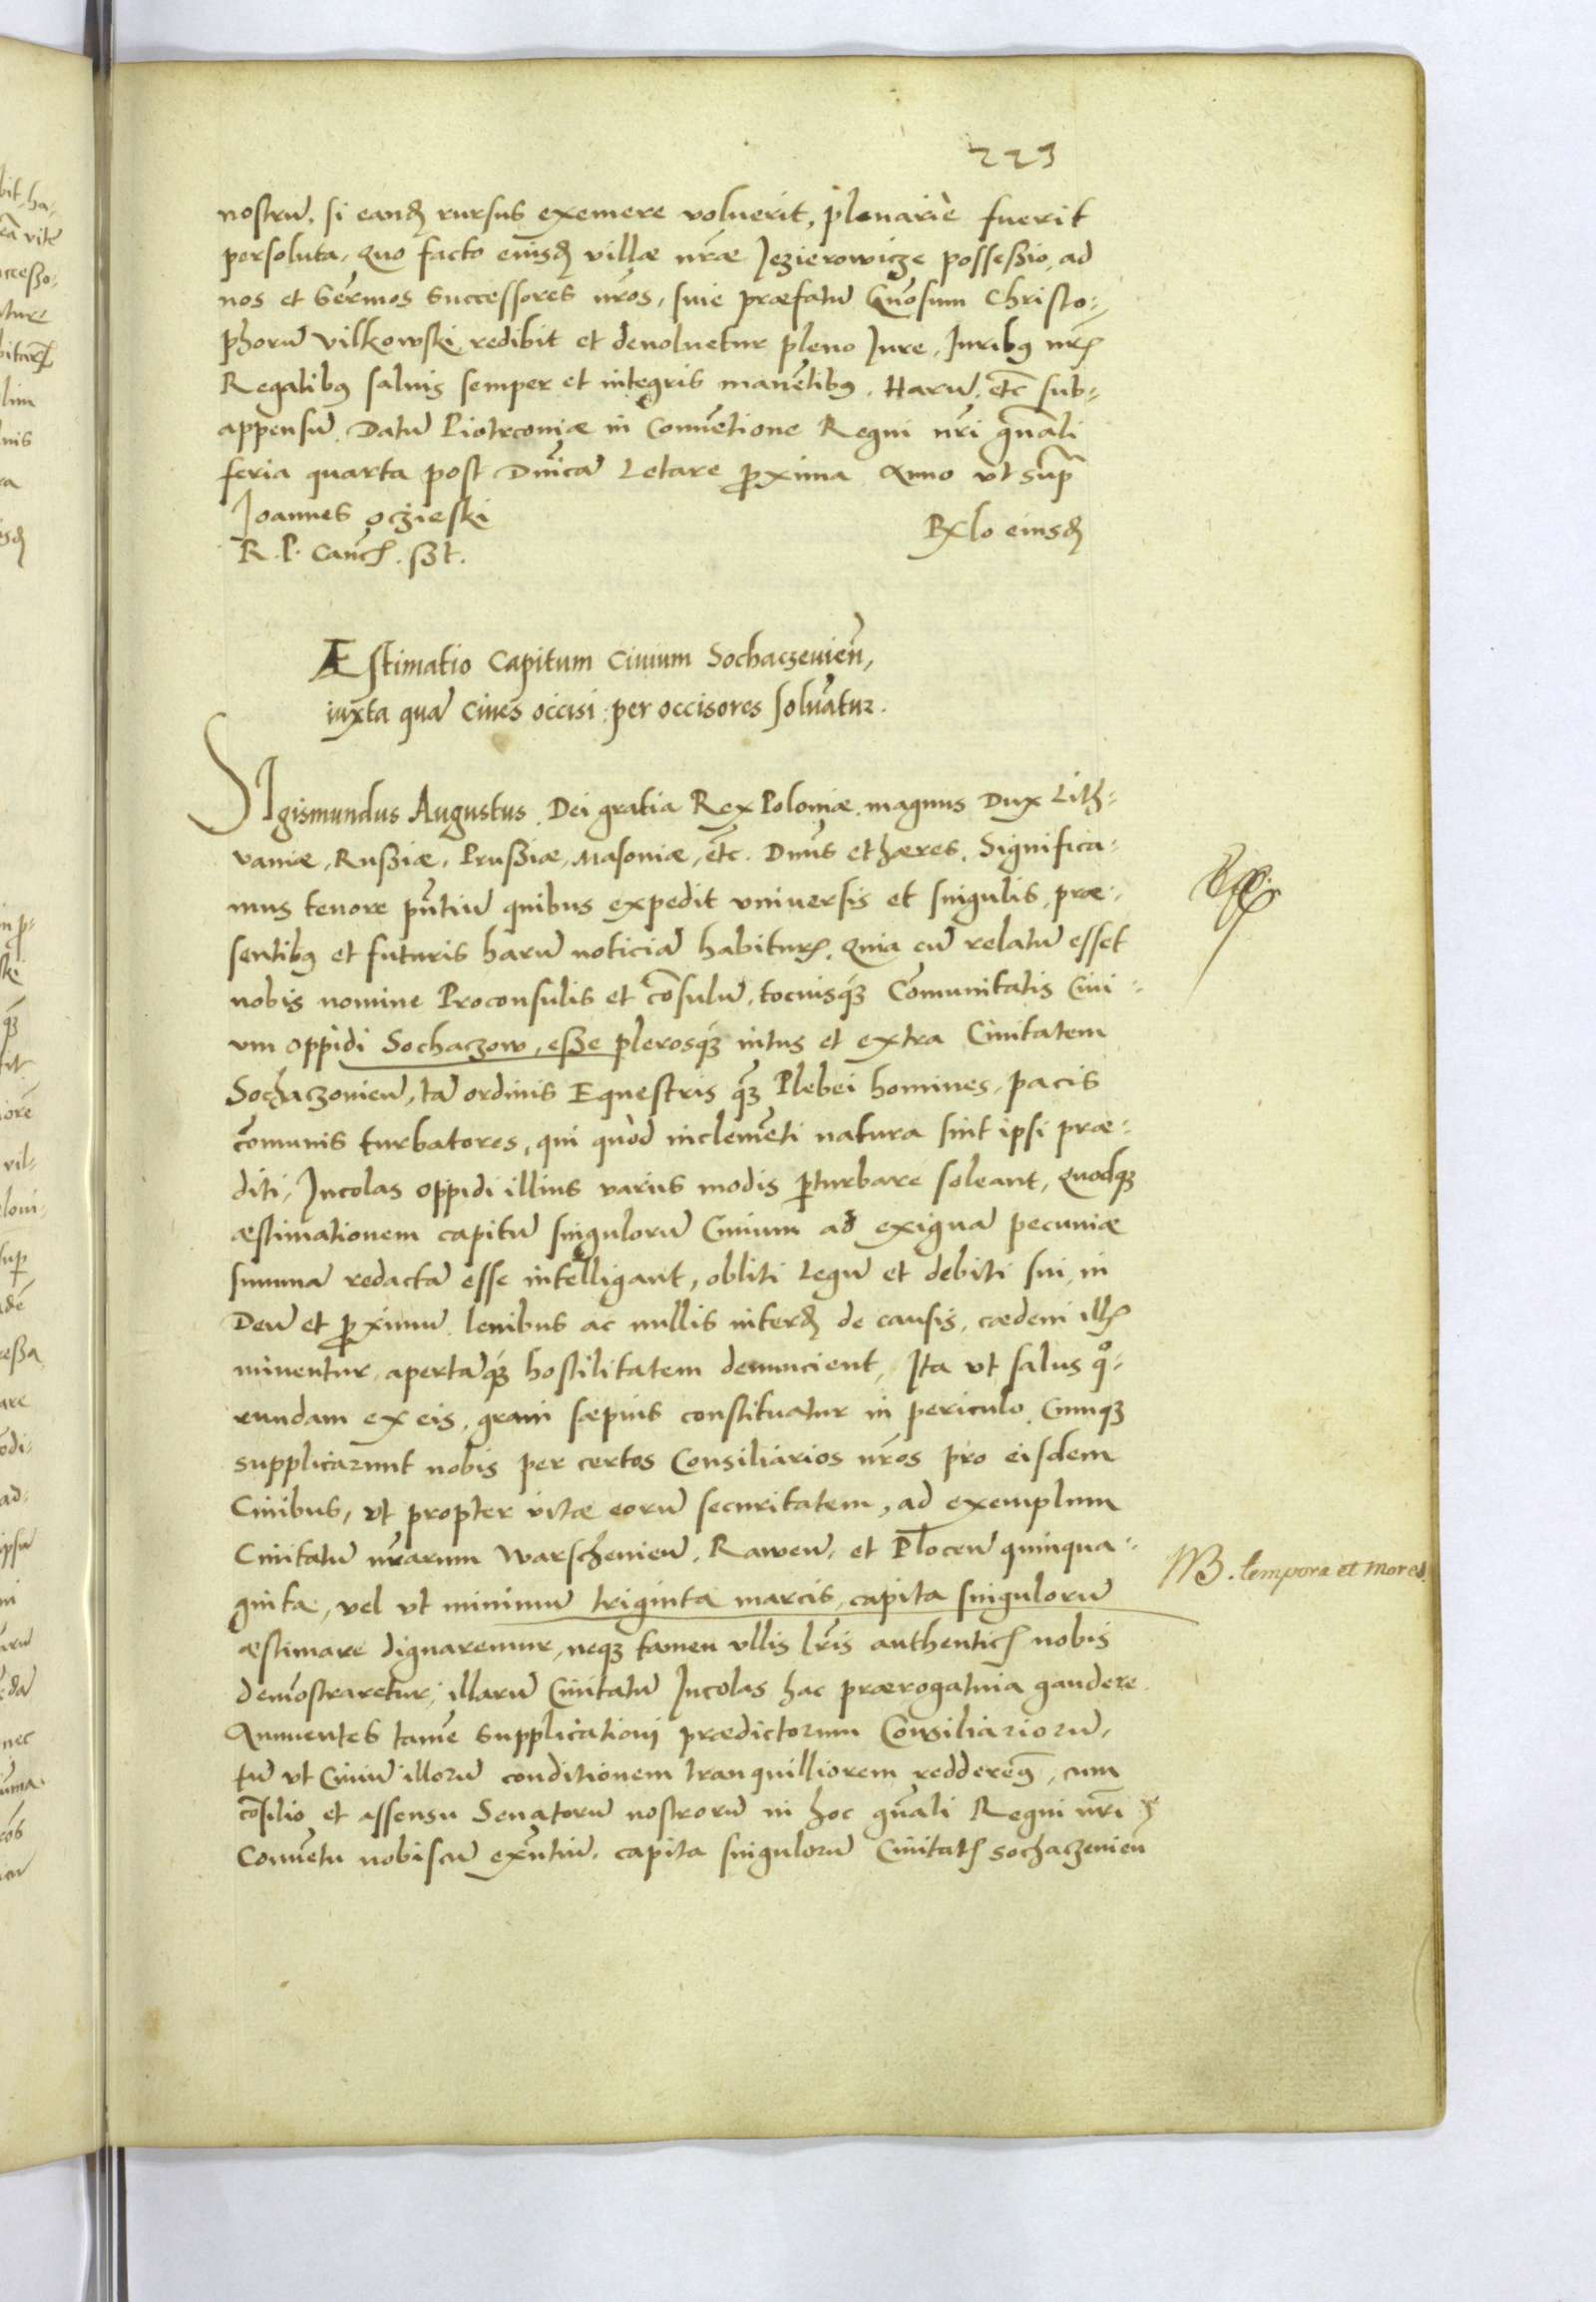 223
nostrũ, si eandẽ rursus exemere voluerit, plenariè fuerit
persoluta, Quo facto eiusdẽ villæ nr̃æ Jezierowicze possessio, ad
nos et Serm̃os Successores nr̃os, siue præfatũ Gn̄osum Christo:
phorũ Vilkowski redibit et deuoluetur pleno Jure, Juribꝰ nr̃is
Regalibꝰ saluis semper et integris manẽtibꝰ. Harũ, etc̃ sub:
appensũ. Datũ Piotrcouiæ in Conuẽtione Regni nr̃i gñali
feria quarta post Dñicã Letare proxima Anno vt sup̃
Joannes oczieski
R. P. Canc̃. sst.
Rẽlo eiusdẽ
Æstimatio Capitum Ciuium Sochaczeuieñ,
iuxta quã Ciues occisi, per occisores soluãtur.
Sigismundus Augustus Dei gratia Rex Poloniæ, magnus Dux Lith:
vaniæ, Russiæ, Prussiæ, Masouiæ, etc̃. Dñus et hæres. Significa:
mus tenore pñtiũ quibus expedit vniuersis et singulis, præ:
sentibꝰ et futuris harũ noticiã habituris, Quia cũ relatũ esset
nobis nomine Proconsulis et cõsulũ, tociusqꝫ Cõmunitatis Ciui:
vm oppidi Sochaczow, esse plerosqꝫ intus et extra Ciuitatem
Sochaczouieñ, tã ordinis Equestris qꝫ Plebei homines, pacis
cõmunis turbatores, qui quòd inclemẽti natura sint ipsi præ:
diti, Incolas oppidi illius varijs modis perturbare soleant, Quodqꝫ
æstimationem capitũ singulorũ Ciuium ad exiguã pecuniæ
summã redactã esse intelligant, obliti Legũ et debiti sui, in
Deũ et proximũ, leuibus ac nullis interdũ de causis, cædem illis
minentur, apertãqꝫ hostilitatem denuncient, Ita vt salus quo:
rundam ex eis, graui sæpius constituatur in periculo, Cumqꝫ
supplicarunt nobis per certos Consiliarios nr̃os pro eisdem
Ciuibus, vt propter vitæ eorũ securitatem, ad exemplum
Ciuitatũ nr̃arum Warscheuieñ, Raweñ, et Ploceñ quinqua:
ginta, vel vt minimũ triginta marcis, capita singulorũ
NB. tempora et mores.
æstimare dignaremur, neqꝫ tamen vllis lr̃is authenticis nobis
demõstraretur, illarũ Ciuitatũ Incolas hac prærogatiua gaudere.
Annuentes tamẽ supplicationi prædictorum Consiliariorũ,
tũ vt Ciuiũ illorũ conditionem tranquilliorem redderemꝰ, cum
cõsilio et assensu Senatorũ nostrorũ in hoc gñali Regni nr̃i
Conuẽtu nobiscũ exñtiũ, capita singulorũ Ciuitatis Sochaczeuieñ